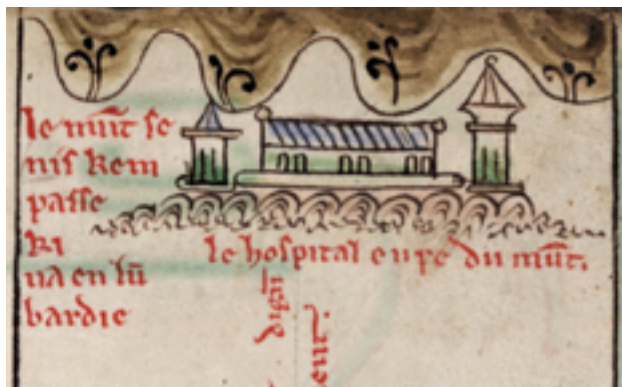 le mūt se
nis kem
passe
ki
ua en lū
bardie
le hospital en pe du mūt.